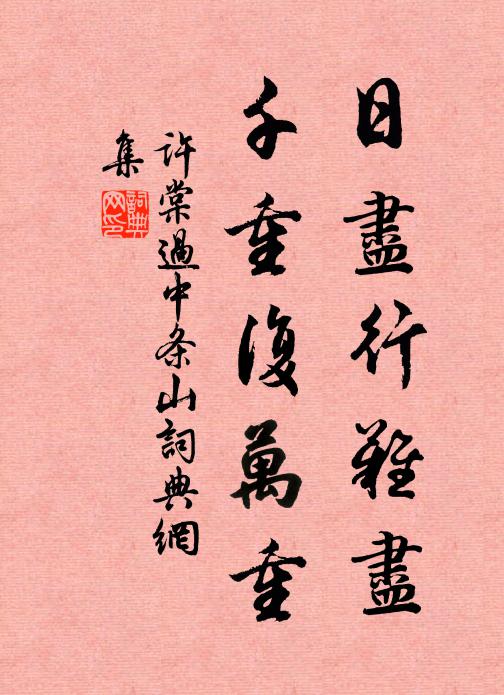 日盡行難盡
千重復萬重
許棠過中条山詞典網
集
詞典
网印